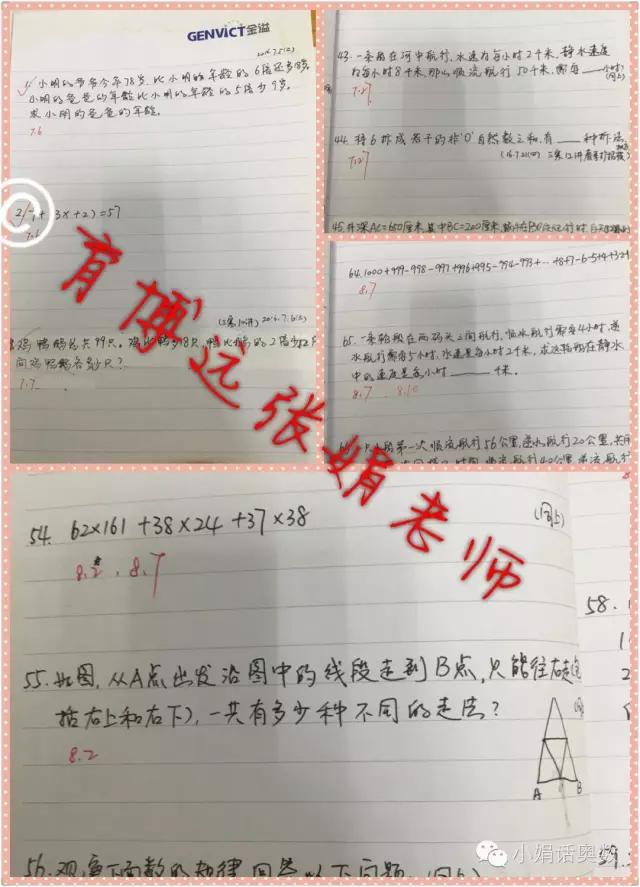 GENVICT金溢
2016.7.5(二)
1/ 小明的爷爷今年78岁，比小明的年龄的6倍还多
小明的爸爸的年龄比小明的年龄的5倍少9岁。
求小明的爸爸的年龄。
7.6
3x+2)=57
7.6
2016.7.6(三)
鸡鸭鹅总共99只。
问鸡鸭鹅各多少只？
7.7
43. 一条船在河中航行，水速为每小时2千米，静水速度
为每小时8千米，那么顺流航行50千米，需要____小时。
(同上)
7.27
44. 将6拆成若干的非'0'自然数之和，有____种拆法。
7.27
45. 井深AC=650厘米，其中BC=200厘米，
64. 1000+999-998-997+996+995-994-993+…+8+7-6-5+4+3-2-1
8.7
65. 一条轮船在两码头之间航行，顺水航行需要4小时，逆
水航行需要5小时，水速是每小时2千米，求这轮船在静水
中的速度是每小时____千米。
8.7 8.10
第一次顺流航行56公里，逆水航行20公里，共用
航行40公里
54. 62×161+38×24+37×38
(同上)
8.2. 8.7
58.
55. 如图，从A点出发沿图中的线段走到B点，只能往右走(包
括右上和右下)，一共有多少种不同的走法？
8.2
A B
56. 观察下面数的规律，回答以下问题。(同上)
59.
育博远张娟老师
小娟话奥数